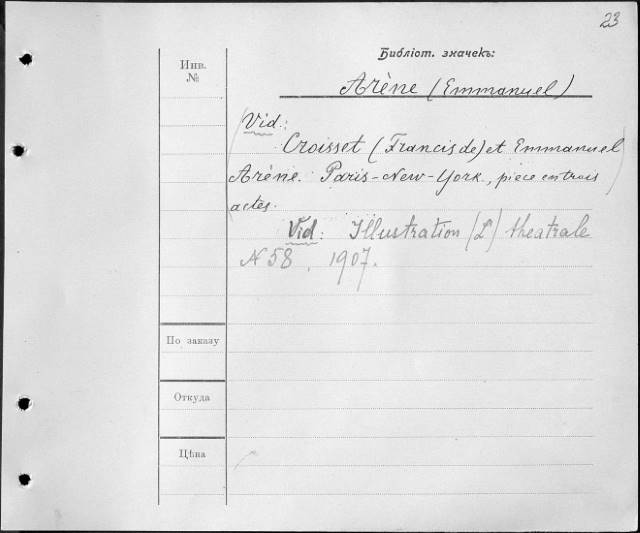 23
Библіот. значекъ:
Инв.
№
Arène (Emmanuel)
(Vid.:
Croisset (Francis de) et Emmanuel
Arène. Paris-New-York., pièce en trois
actes.)
Vid: Illustration (L') theatrale
N 58, 1907.
По заказу
Откуда
Цѣна